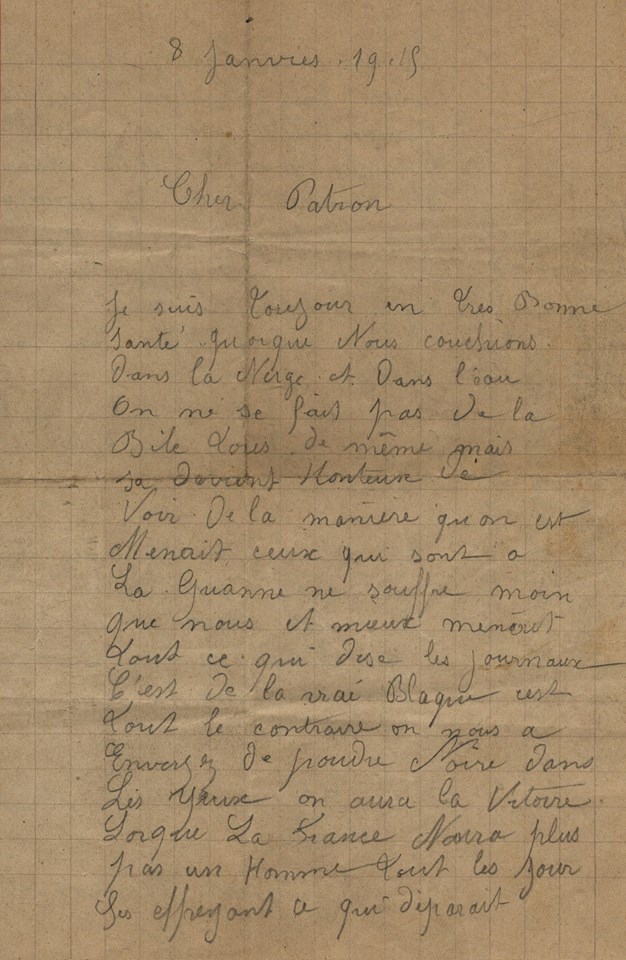 8 Janvies. 19.15
Cher Patron
Je suis Toujour en tres Bonne
Santé quoique Nous couchions.
Dans la Neige et Dans l'eau
On ne se fait pas de la
Bile tous de même mais
sa devient Honteux de
Voir de la maniére qu'on est
Menait ceux qui sont a
La Guanne ne souffre moin
que nous et mieux menerait
tout ce qui dise les journaux
C'est de la vrai Blaque cest
tout le contraire on nous a
Envoyez de poudre Noire dans
Les Yeux on aura la Vitoire.
Lorque La France Naura plus
pas un Homme tout les jour
Ses effreyant ce qui diparait